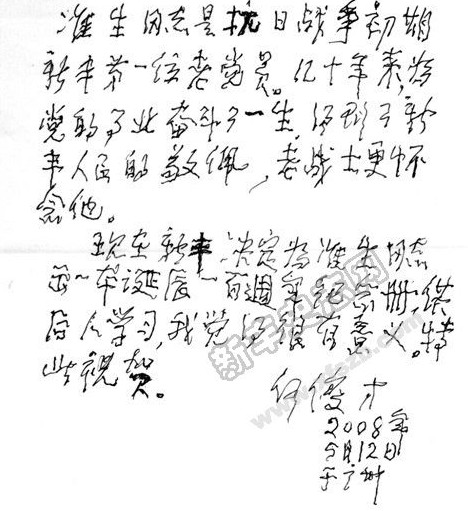 淮生同志是抗日战争初期
新丰第一位老党员。几十年来,为
党的事业奋斗了一生,得到了新
丰人民的敬佩,老战士更怀
念他。
现在新丰决定为淮生同志
出一本诞辰一百週年纪念册,供
后人学习,我觉得很有意义。特
此祝贺。
何俊才
2008年
5月12日
于广州
新丰
www.